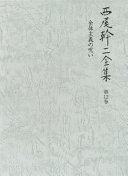 西尾幹二全集
第十巻
全体主義の呪い